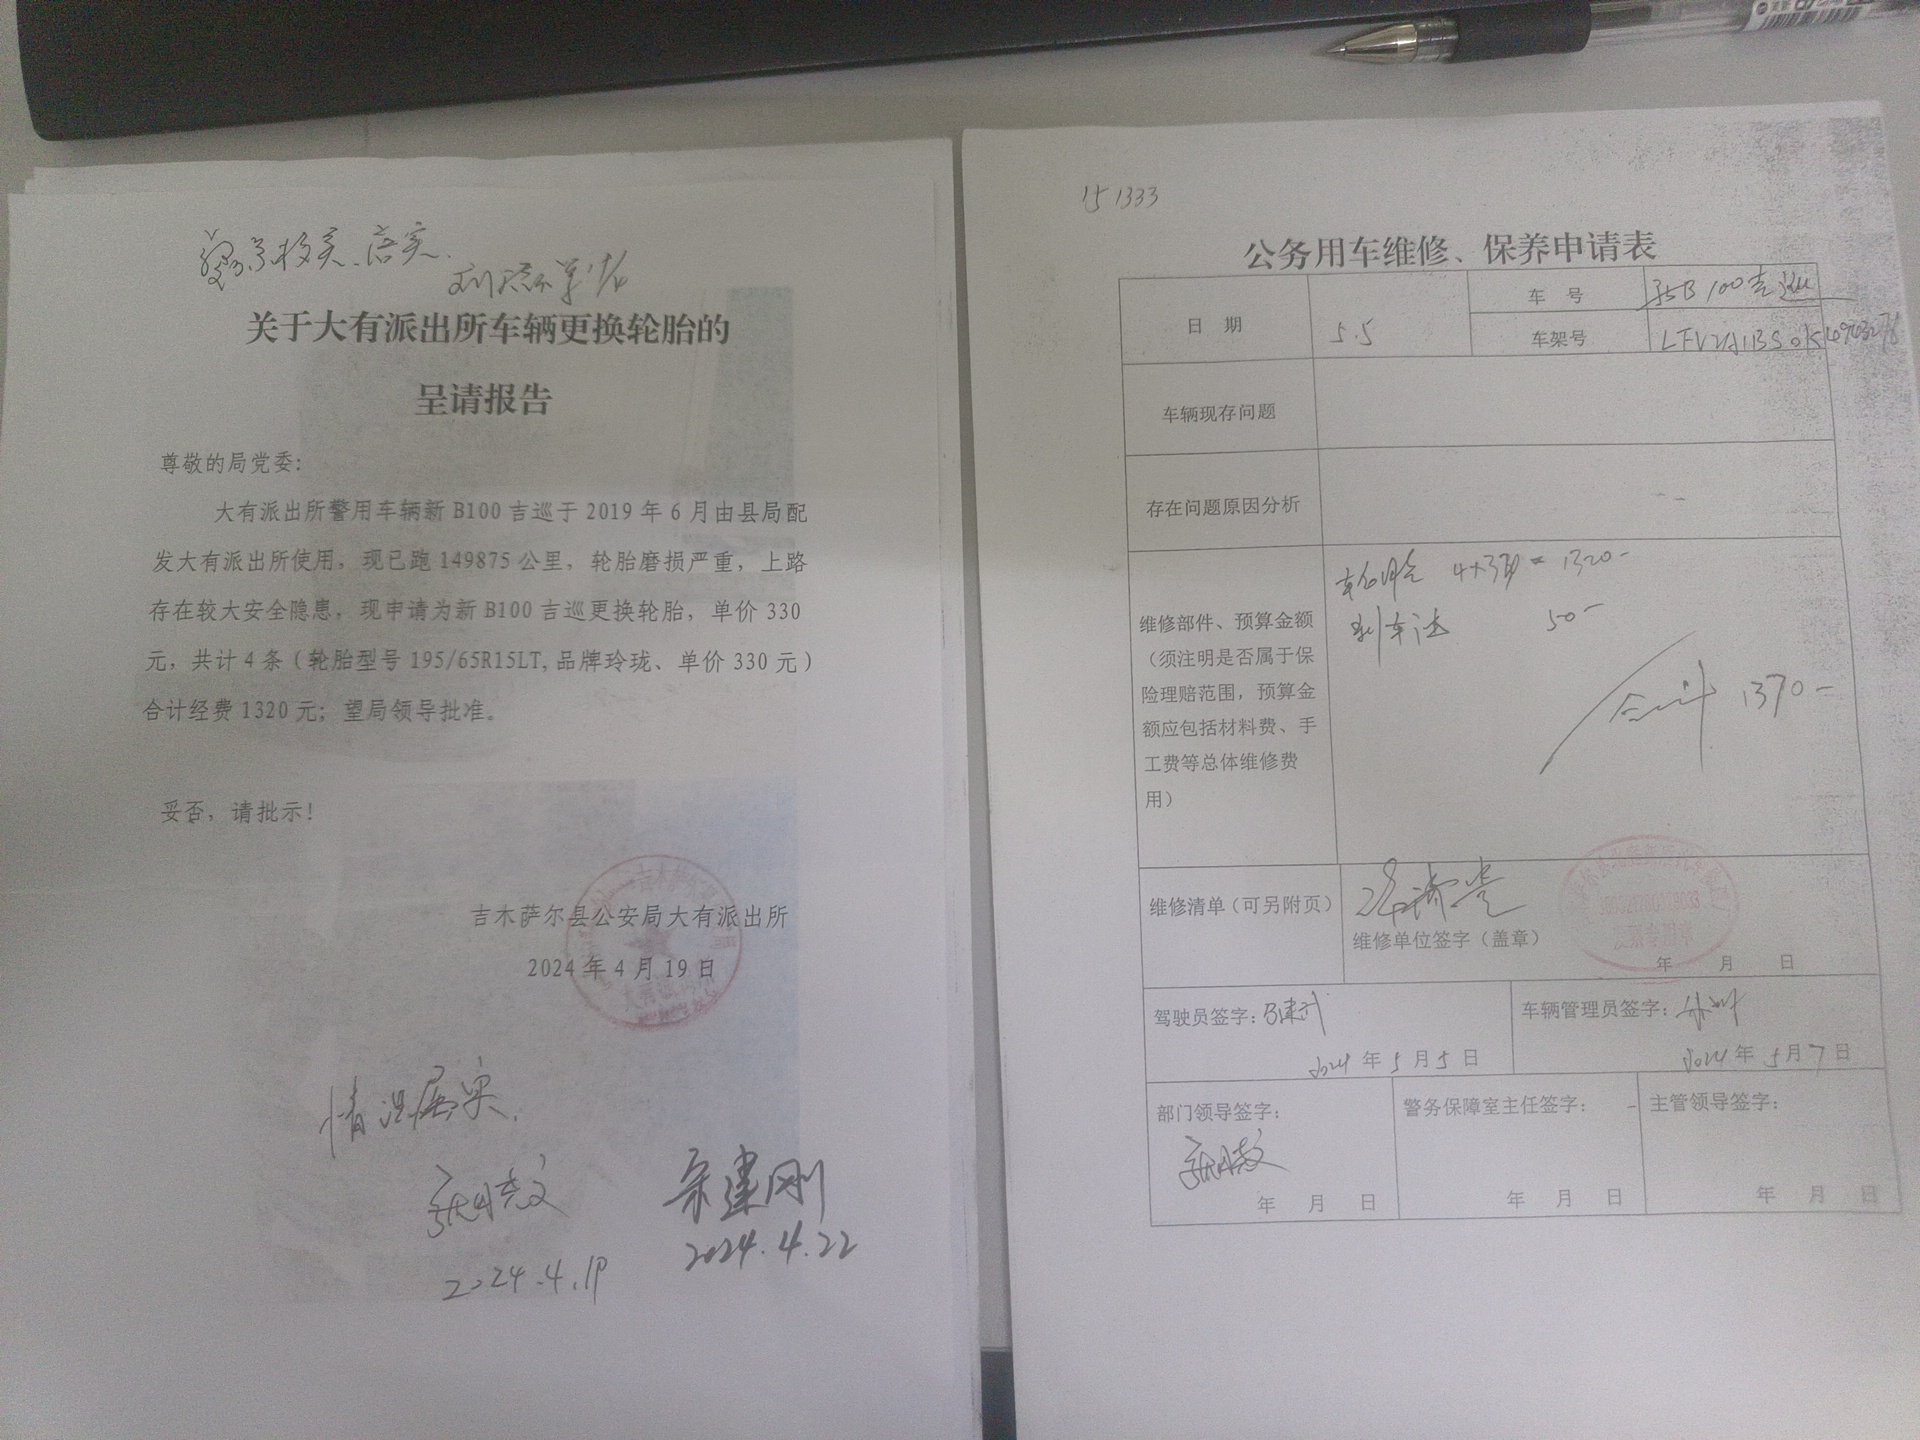 关于大有派出所车辆更换轮胎的
呈请报告
尊敬的局党委:
大有派出所警用车辆新 B100 吉巡于 2019 年 6 月由县局配
发大有派出所使用，现已跑 149875 公里，轮胎磨损严重，上路
存在较大安全隐患，现申请为新 B100 吉巡更换轮胎，单价 330
元，共计 4 条（轮胎型号 195/65R15LT, 品牌玲珑、单价 330 元）
合计经费 1320 元；望局领导批准。
妥否，请批示！
吉木萨尔县公安局大有派出所
2024 年 4 月 19 日
情况属实.
宋建刚
2024.4.19
2024.4.22
151333
公务用车维修、保养申请表
日 期
5.5
车 号
新B 100吉巡
车架号
车辆现存问题
存在问题原因分析
维修部件、预算金额
（须注明是否属于保
险理赔范围，预算金
额应包括材料费、手
工费等总体维修费
用）
轮胎 4×330 = 1320-
刹车油 50-
合计 1370-
维修清单（可另附页）
维修单位签字（盖章）
年 月 日
驾驶员签字:
2024 年 5 月 5 日
车辆管理员签字:
2024 年 5 月 7 日
部门领导签字:
年 月 日
警务保障室主任签字:
年 月 日
主管领导签字:
年 月 日